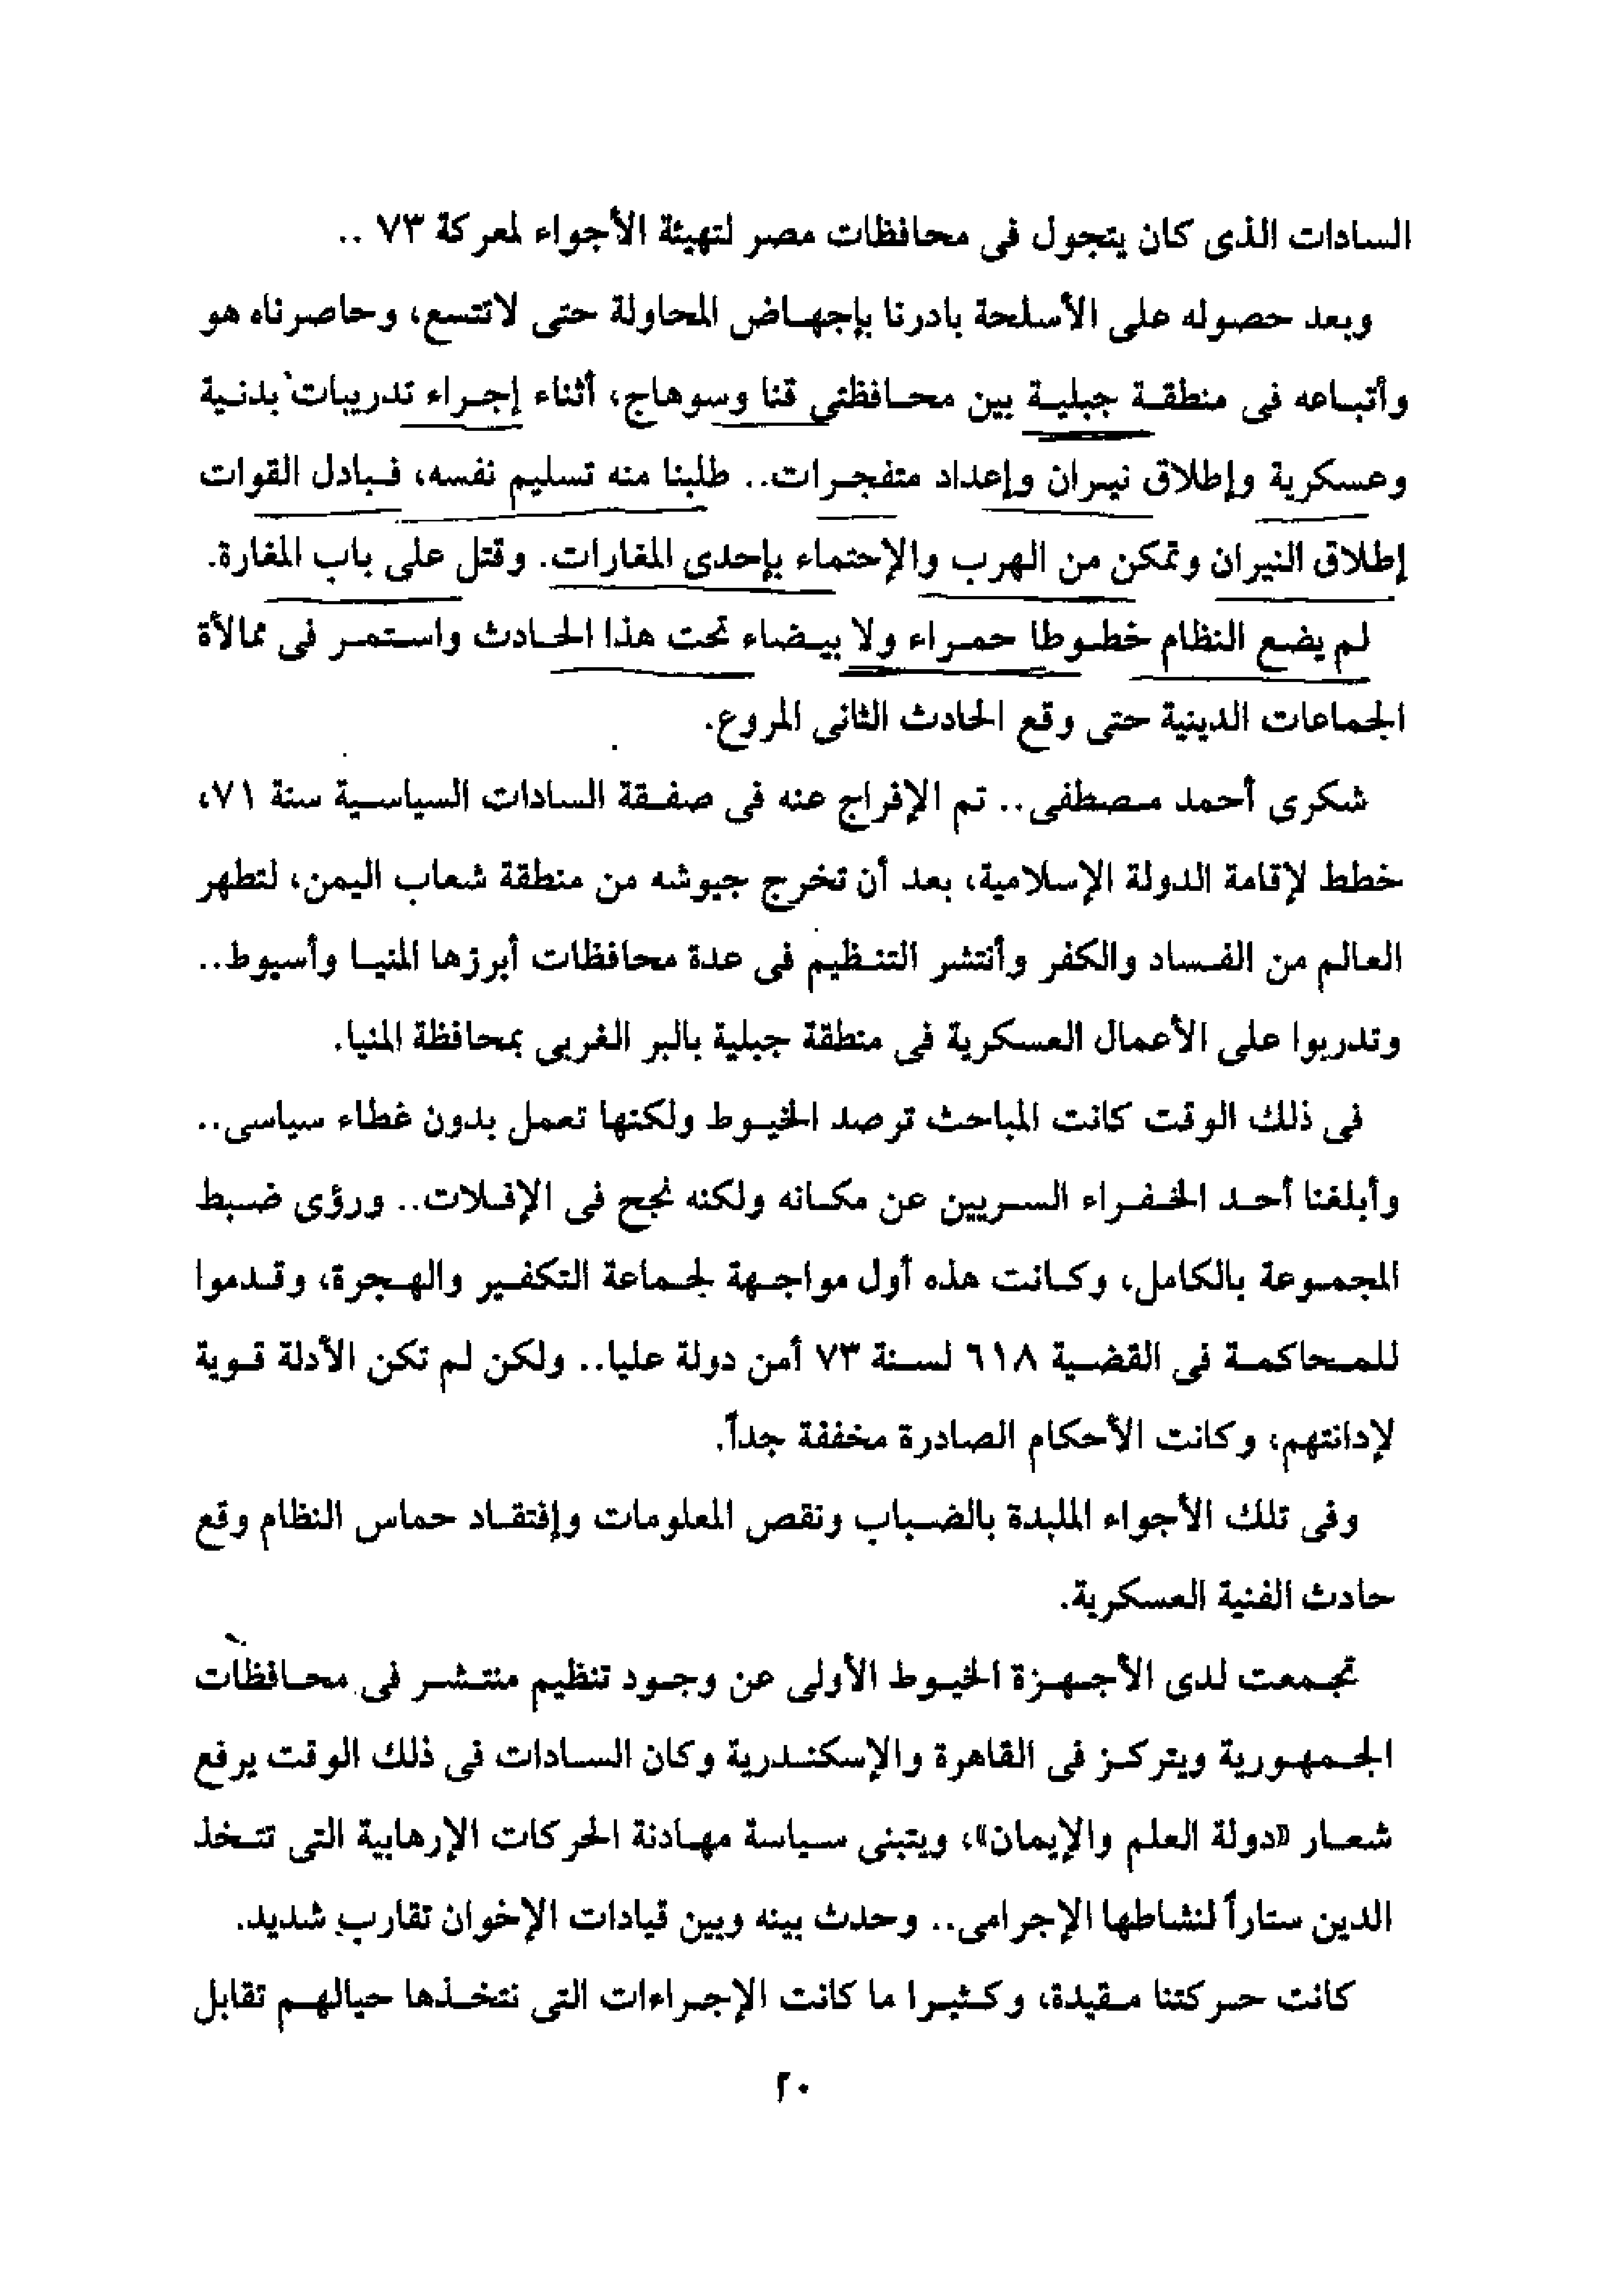 السادات الذى كان يتجول فى محافظات مصر لتهيئة الأجواء لمعركة ٧٣ ..
وبعد حصوله على الأسلحة بادرنا بإجهاض المحاولة حتى لاتتسع، وحاصرناه هو
وأتباعه فى منطقة جبلية بين محافظتى قنا وسوهاج، أثناء إجراء تدريبات بدنية
وعسكرية وإطلاق نيران وإعداد متفجرات.. طلبنا منه تسليم نفسه، فبادل القوات
إطلاق النيران وتمكن من الهرب والإحتماء بإحدى المغارات. وقتل على باب المغارة.
لم يضع النظام خطوطا حمراء ولا بيضاء تحت هذا الحادث واستمر فى ممالأة
الجماعات الدينية حتى وقع الحادث الثانى المروع.
شكرى أحمد مصطفى.. تم الإفراج عنه فى صفقة السادات السياسية سنة ٧١،
خطط لإقامة الدولة الإسلامية، بعد أن تخرج جيوشه من منطقة شعاب اليمن، لتطهر
العالم من الفساد والكفر وأنتشر التنظيم فى عدة محافظات أبرزها المنيا وأسيوط..
وتدربوا على الأعمال العسكرية فى منطقة جبلية بالبر الغربى بمحافظة المنيا.
فى ذلك الوقت كانت المباحث ترصد الخيوط ولكنها تعمل بدون غطاء سياسى..
وأبلغنا أحد الخفراء السريين عن مكانه ولكنه نجح فى الإفلات.. ورؤى ضبط
المجموعة بالكامل، وكانت هذه أول مواجهة لجماعة التكفير والهجرة، وقدموا
للمحاكمة فى القضية ٦١٨ لسنة ٧٣ أمن دولة عليا.. ولكن لم تكن الأدلة قوية
لإدانتهم، وكانت الأحكام الصادرة مخففة جداً.
وفى تلك الأجواء الملبدة بالضباب ونقص المعلومات وإفتقاد حماس النظام وقع
حادث الفنية العسكرية.
تجمعت لدى الأجهزة الخيوط الأولى عن وجود تنظيم منتشر فى محافظات
الجمهورية ويتركز فى القاهرة والإسكندرية وكان السادات فى ذلك الوقت يرفع
شعار «دولة العلم والإيمان»، ويتبنى سياسة مهادنة الحركات الإرهابية التى تتخذ
الدين ستاراً لنشاطها الإجرامى.. وحدث بينه وبين قيادات الإخوان تقارب شديد.
كانت حركتنا مقيدة، وكثيرا ما كانت الإجراءات التى نتخذها حيالهم تقابل
٢٠